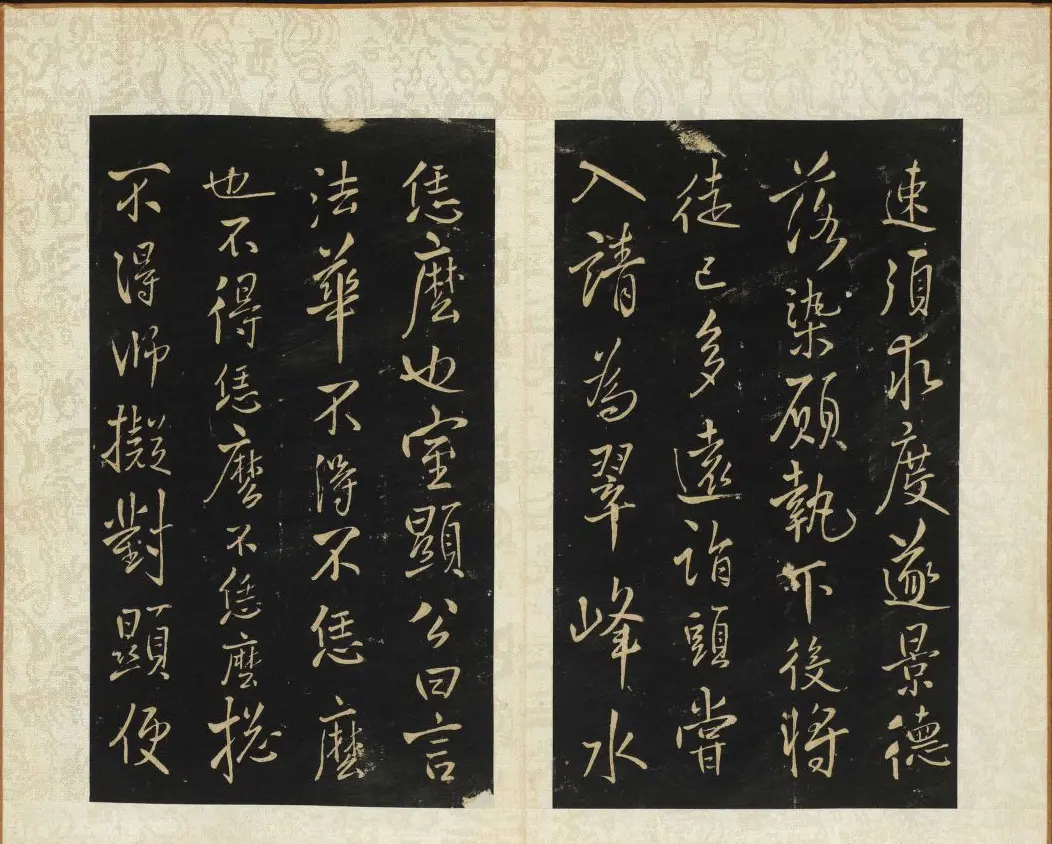 速須求度遂景德
落染願執後将
徒已多遠詣頭嘗
入請為翠峰水
恁麼也室顯公曰言
法華不得不恁麼
也不得恁麼不恁麼揔
不得師擬對顯便